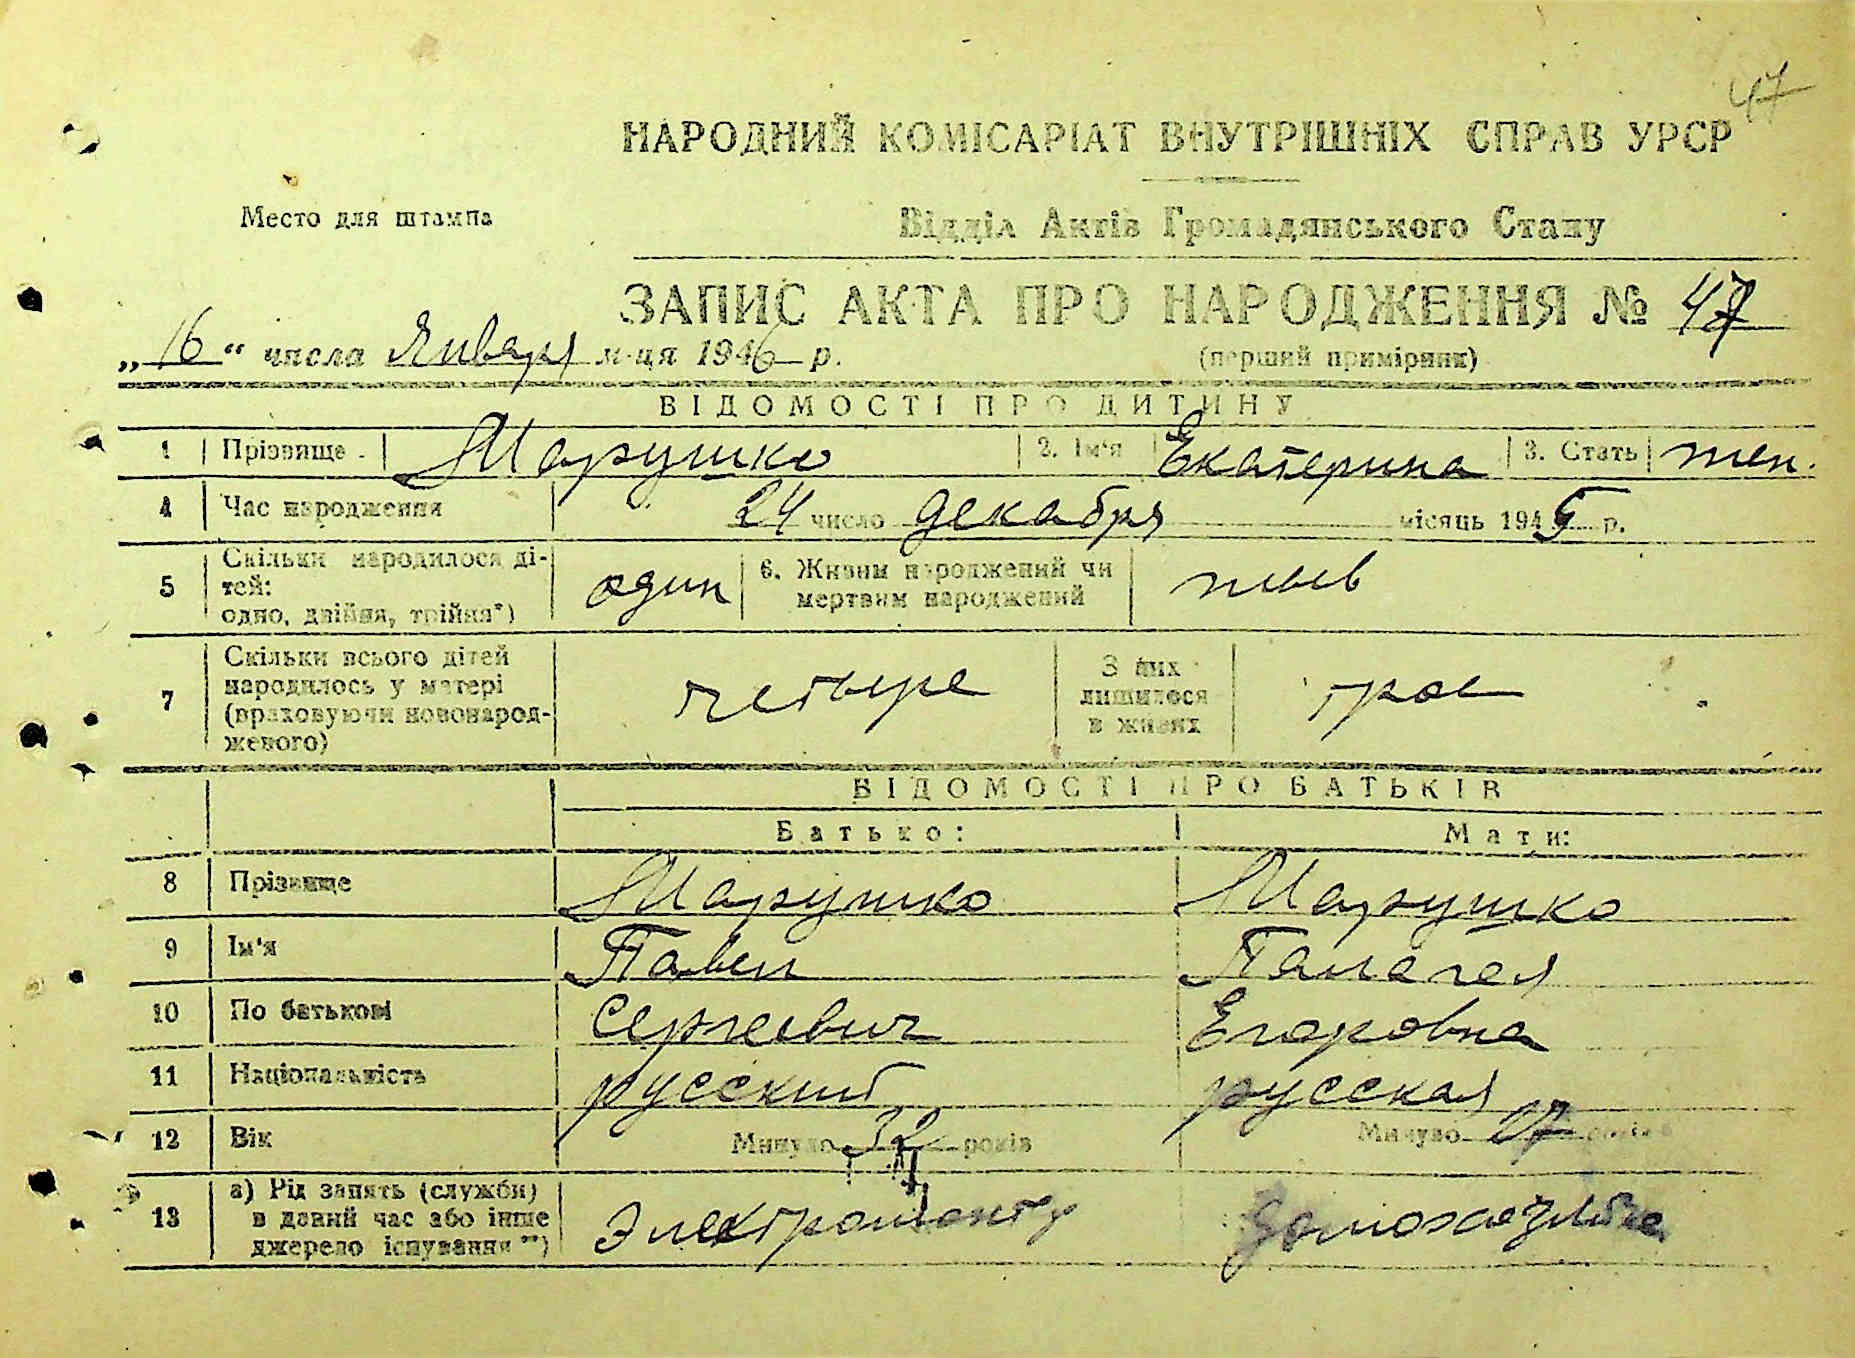 47
НАРОДНИЙ КОМІСАРІАТ ВНУТРІШНІХ СПРАВ УРСР
Место для штампа
Відділ Актів Громадянського Стану
ЗАПИС АКТА ПРО НАРОДЖЕННЯ № 47
„16“ числа Января м-ця 1946 р. (перший примірник)
ВІДОМОСТІ ПРО ДИТИНУ
1 Прізвище Марушко 2. Ім'я Екатерина 3. Стать жен.
4 Час народження 24 число декабря місяць 1945 р.
5 Скільки народилося ді-
тей:
одно, двійня, трійня*) один 6. Живим народжений чи
мертвим народжений жив
7 Скільки всього дітей
народилось у матері
(враховуючи новонарод-
женого) четыре З них
лишилося
в живих трое
ВІДОМОСТІ ПРО БАТЬКІВ
Батько: Мати:
8 Прізвище Марушко Марушко
9 Ім'я Павел Палагея
10 По батькові Сергеевич Егоровна
11 Національність русский русская
12 Вік Минуло 32 років Минуло 27 років
13 а) Рід занять (служби)
в даний час або інше
джерело існування**) Электромонт домохозяйка